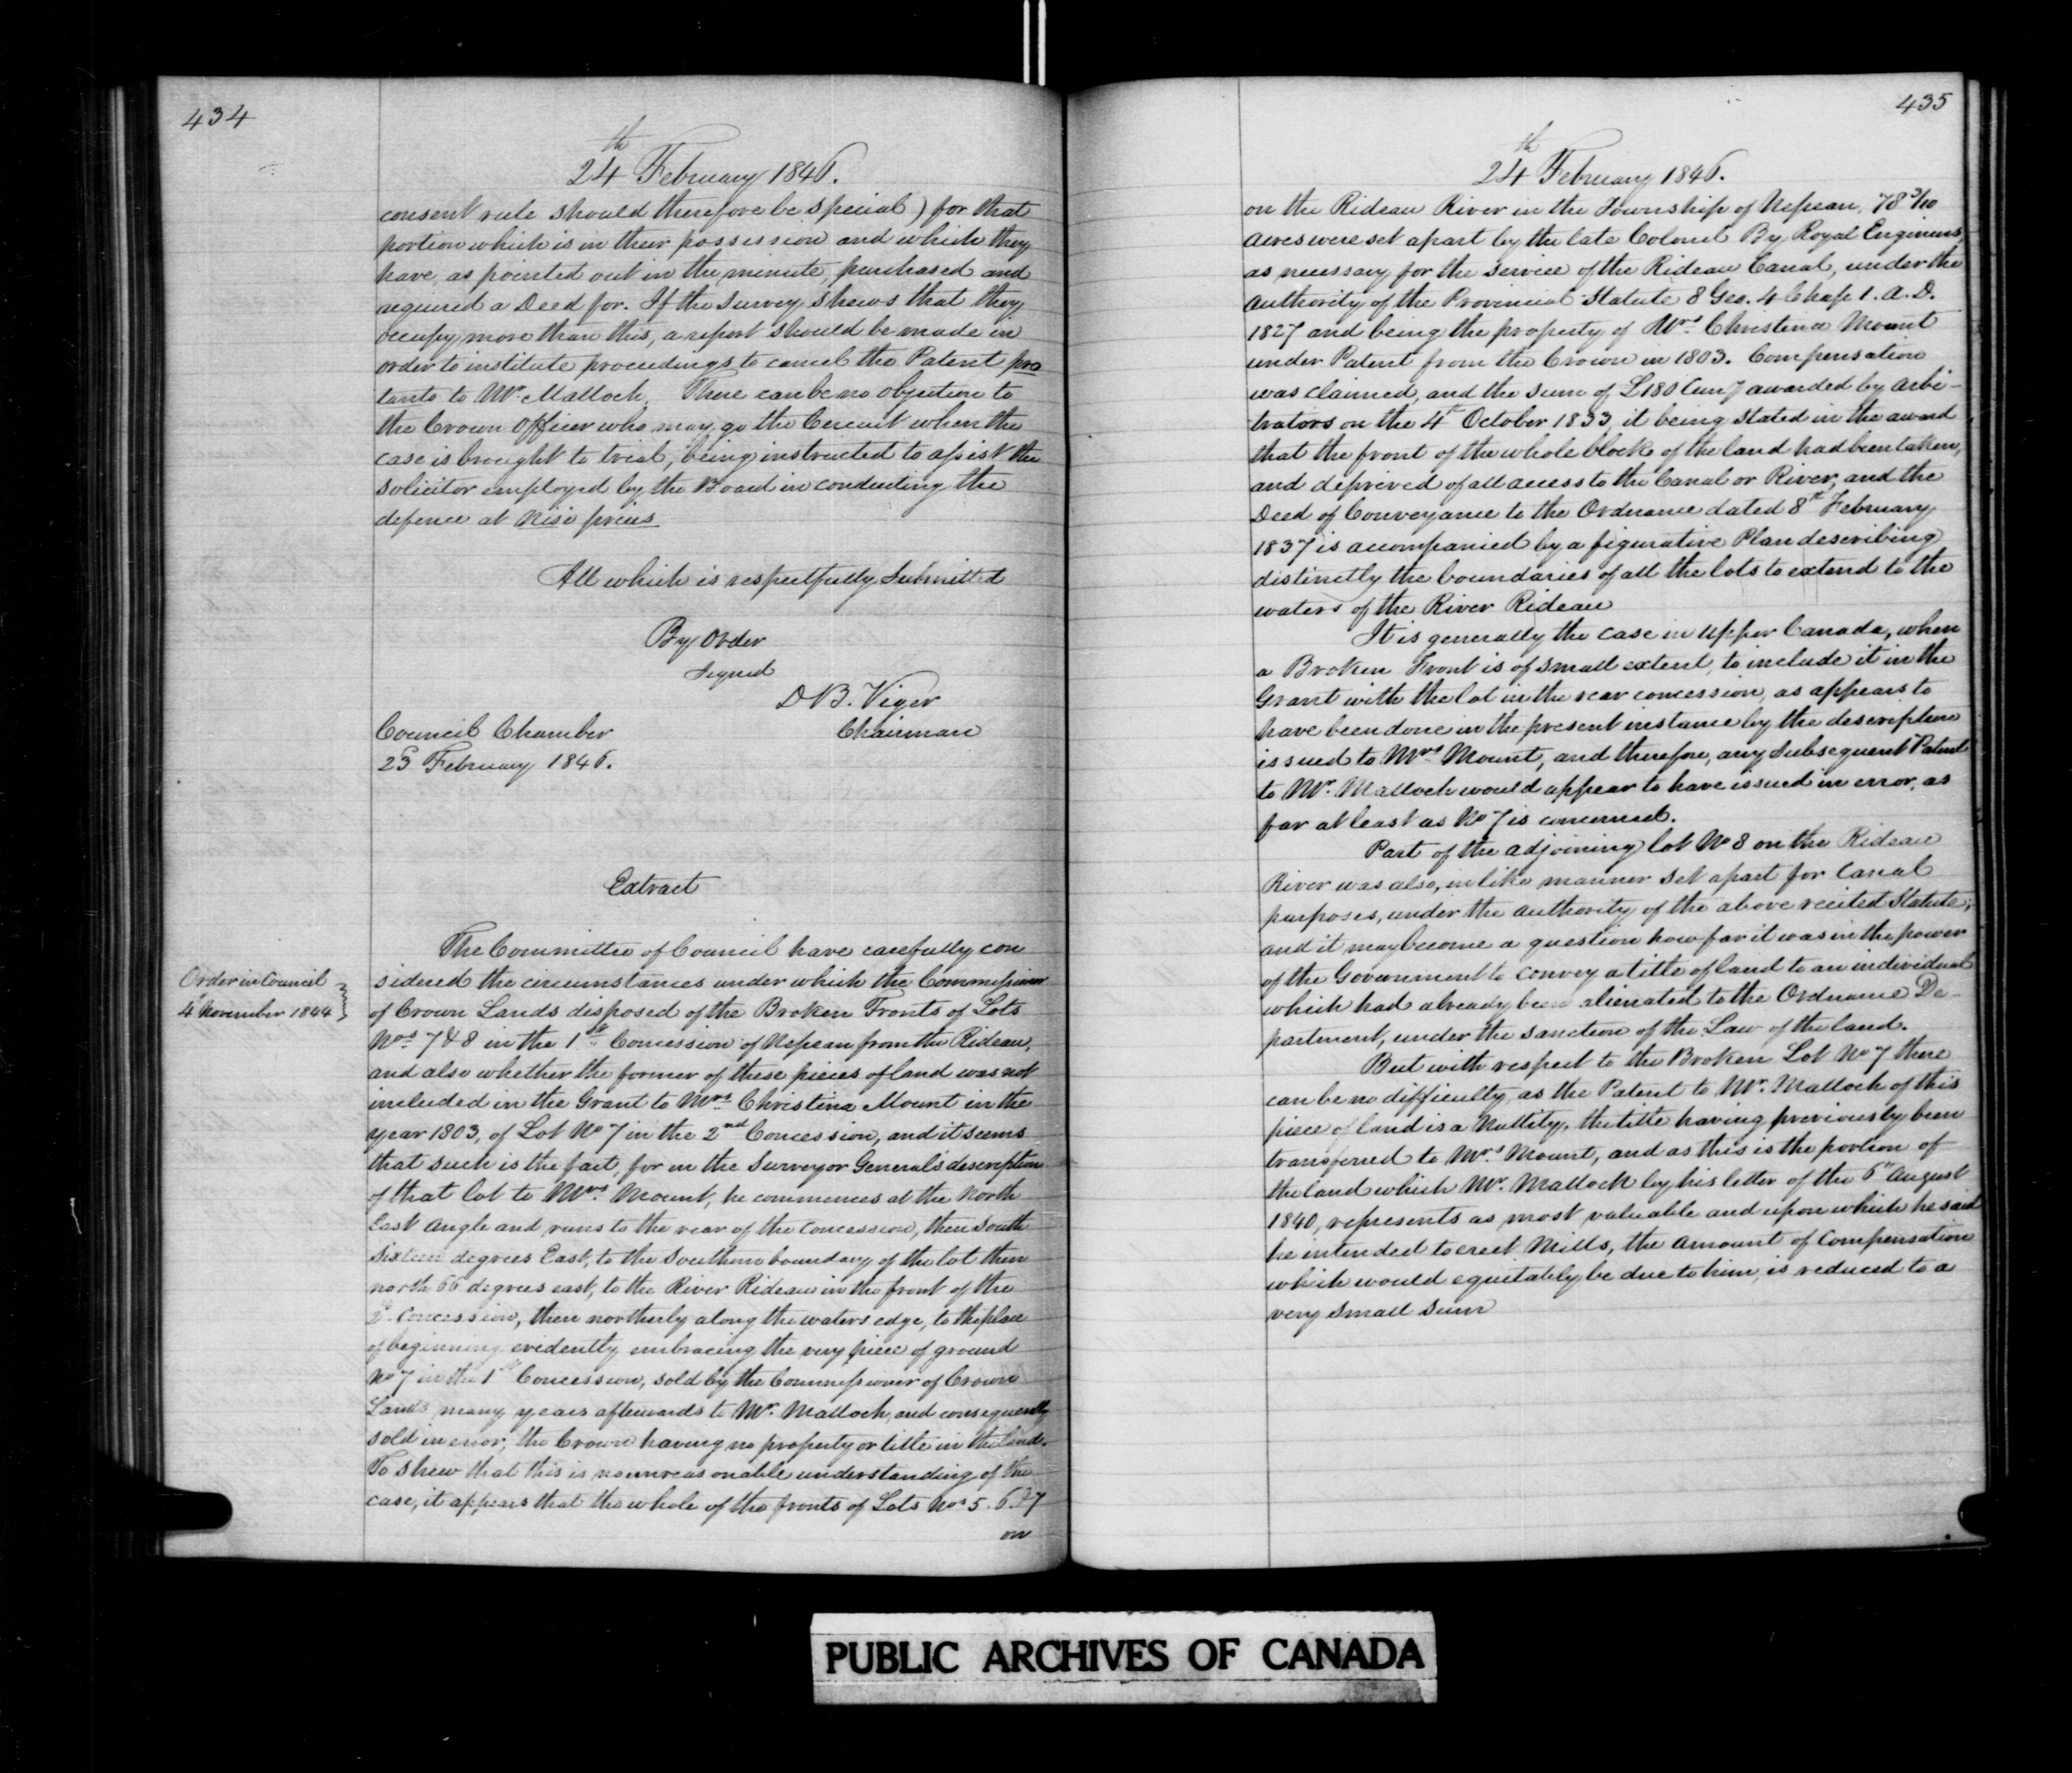 434
24th February 1846.
consent rule should therefore be special) for that
portion which is in their possession and which they
have, as pointed out in the minute, purchased and
required a Deed for. If the Survey shews that they
occupy more than this, a report should be made in
order to institute proceedings to cancel the Patent pro
tanto to Mr. Malloch. There can be no objection to
the Crown Officer who may go the Circuit when the
case is brought to trial, being instructed to assist the
Solicitor employed by the Board in conducting the
defence at Nisi prius
All which is respectfully Submitted
By Order
Signed
D B. Viger
Council Chamber Chairman
23d February 1846.
Extract
The Committee of Council have carefully con
Order in Council
4th November 1844
sidered the circumstances under which the Commissioner
of Crown Lands disposed of the Broken Fronts of Lots
Nos 7 & 8 in the 1st Concession of Nepean from the Rideau,
and also whether the former of these pieces of land was not
included in the Grant to Mrs Christina Mount in the
year 1803, of Lot No 7 in the 2nd Concession, and it seems
that such is the fact, for in the Surveyor General's description
of that lot to Mrs Mount, he commences at the North
East Angle and runs to the rear of the concession, then South
Sixteen degrees East, to the Southern boundary of the lot then
north 66 degrees east, to the River Rideau in the front of the
2d Concession, then northerly along the waters edge, to the place
of beginning evidently embracing the very piece of ground
No 7 in the 1st Concession, sold by the Commissioner of Crown
Lands many years afterwards to Mr. Malloch, and consequently
sold in error, the Crown having no property or title in the land.
To shew that this is no unreasonable understanding of the
case, it appears that the whole of the fronts of Lots Nos 5. 6. & 7
on
435
24th February 1846.
on the Rideau River in the Township of Nepean, 78 3/10
Acres were set apart by the late Colonel By, Royal Engineers,
as necessary for the service of the Rideau Canal, under the
authority of the Provincial Statute 8 Geo. 4 Chap 1. A.D.
1827 and being the property of Mrs Christina Mount
under Patent from the Crown in 1803. Compensation
was claimed, and the sum of £180 Curry awarded by Arbi-
trators on the 4th October 1833, it being stated in the award
that the front of the whole block of the land had been taken,
and deprived of all access to the Canal or River, and the
Deed of Conveyance to the Ordnance dated 8th February
1837 is accompanied by a figurative Plan describing
distinctly the boundaries of all the lots to extend to the
waters of the River Rideau
It is generally the case in Upper Canada, when
a Broken Front is of small extent, to include it in the
Grant with the lot in the rear concession, as appears to
have been done in the present instance by the description
issued to Mrs Mount, and therefore, any Subsequent Patent
to Mr. Malloch would appear to have issued in error, as
far at least as No 7 is concerned.
Part of the adjoining lot No 8 on the Rideau
River was also, in like manner set apart for Canal
purposes, under the authority of the above recited Statute;
and it may become a question how far it was in the power
of the Government to convey a title of land to an individual
which had already been alienated to the Ordnance De-
partment, under the sanction of the Law of the land.
But with respect to the Broken Lot No 7 there
can be no difficulty, as the Patent to Mr. Malloch of this
piece of land is a Nullity, the title having previously been
transferred to Mrs Mount, and as this is the portion of
the land which Mr. Malloch by his letter of the 6th August
1840, represents as most valuable and upon which he said
he intended to erect Mills, the amount of Compensation
which would equitably be due to him, is reduced to a
very small sum
PUBLIC ARCHIVES OF CANADA